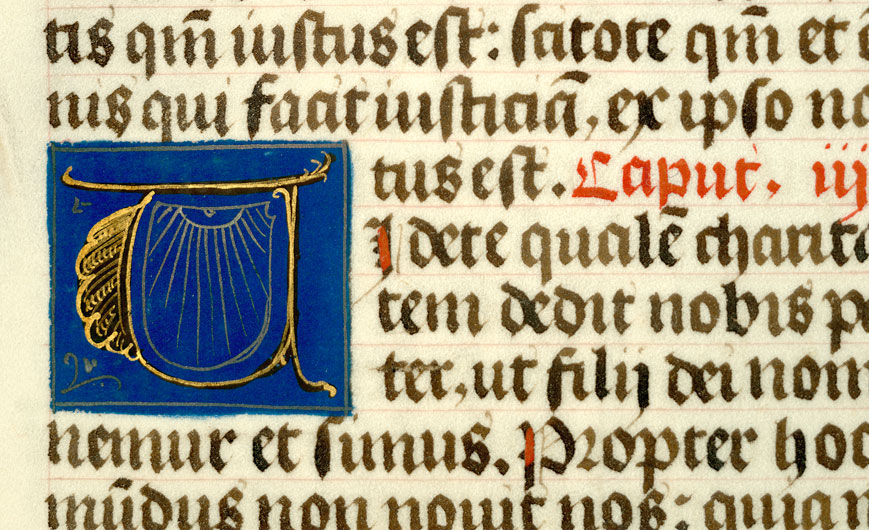 tis qm̄ iustus est: scitote qm̄ et
nis qui facit iusticiā, ex ipso
tus est. Caput. iij
V Idete qualē charita
tem dedit nobis p
ter, ut filij dei nom
nemur et simus. Propter hoc
mūdus non nouit nos: quia